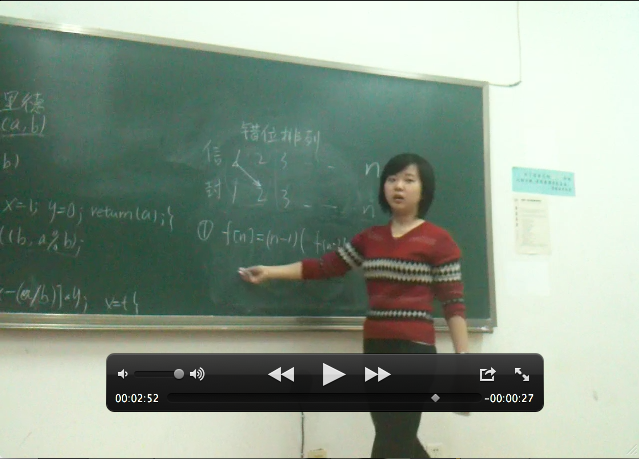 里德
(a,b)
b)
x=1; y=0; return(a);}
((b, a%b);
x-(a/b)*y; y=t;
错位排列
信 1 2 3 … n
封 1 2 3 … n
① f[n]=(n-1)(f[n-1]
00:02:52
-00:00:27